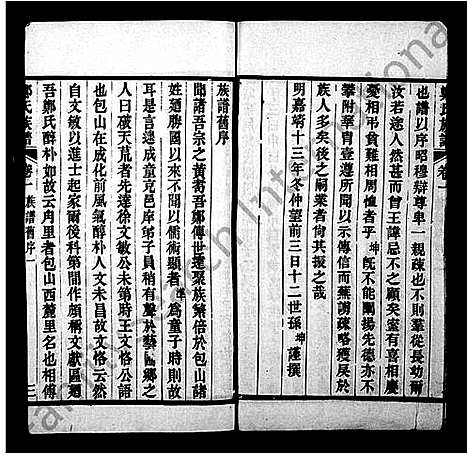 也譜以序昭穆辯尊卑一親疎也不則羣從長幼爾
汝若途人然甚而曾王諱忌不之顧矣室有喜相慶
憂相弔貧難相周恤者乎坤旣不能闡揚先德亦不
攀附華胄壹遵所聞以示傳信而蕪謭疎略獲展於
族人多矣後之嗣業者尙其振之哉
明嘉靖十三年冬仲望前三日十二世孫坤謹撰
族譜舊序
聞諸吾宗之黃耉吾鄭傳世遼聚族繁倍於包山諸
姓廼勝國以來不聞以儒術顯者準為童子時則故
耳是言逮成童克邑庠弟子員稍有聲於藝區鄉之
人曰破天荒者先達徐文敏公未第時王文恪公語
也包山在成化前風氣醇朴人文未昌故文恪云然
自文敏以進士起家爾後科第間作頗稱文獻區廼
吾鄭氏醇朴如故云肉里者包山西麓里名也相傳
鄭氏族譜
卷一
族譜舊序